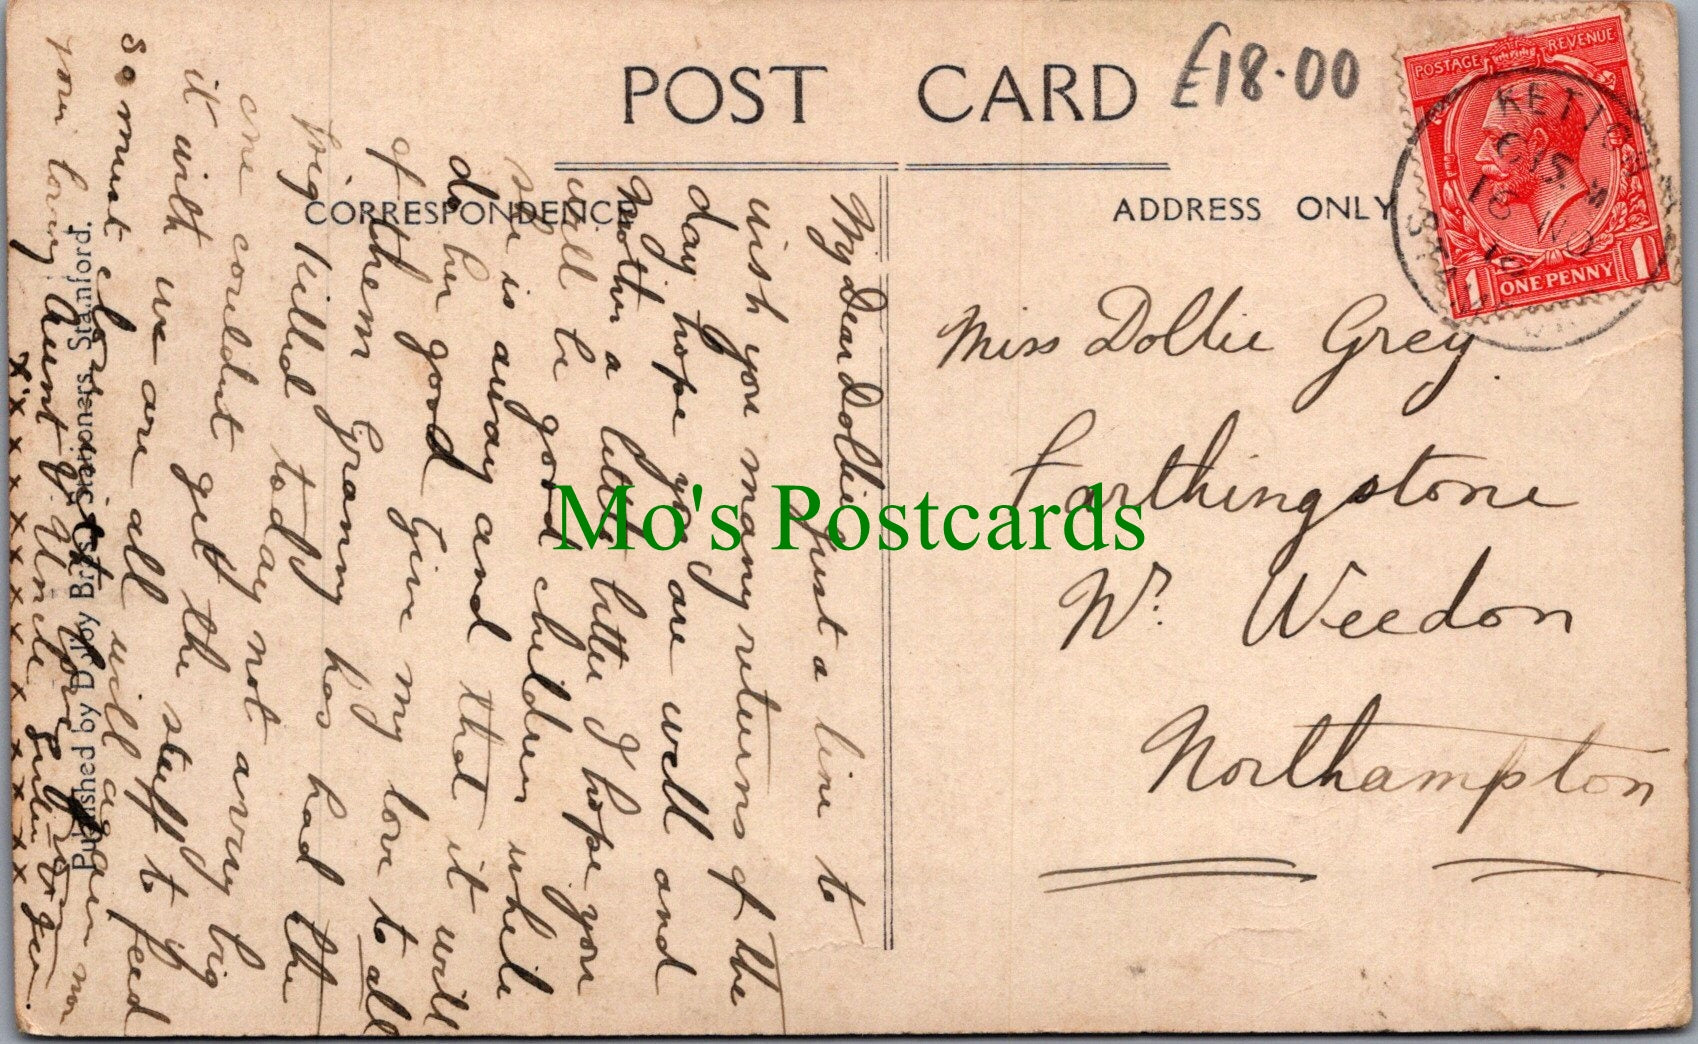 POST CARD
£18.00
POSTAGE REVENUE
1 ONE PENNY 1
KETTON
STAMF
CORRESPONDENCE
ADDRESS ONLY
My Dear Dollie just a line to
wish you many returns of the
day hope you are well and
Mother a little better I hope you
will be good children while
she is away and that it will
do her good Give my love to all
of them Granny has had the
pig killed today not a very big
one couldent get the stuff to feed
it with we are all well
so must close
your loving Aunt & Uncle
x x x x x x x x x x
Miss Dollie Grey
Farthingstone
Nr Weedon
Northampton
Published by Dolby Bros. Stationers. Stamford.
Mo's Postcards